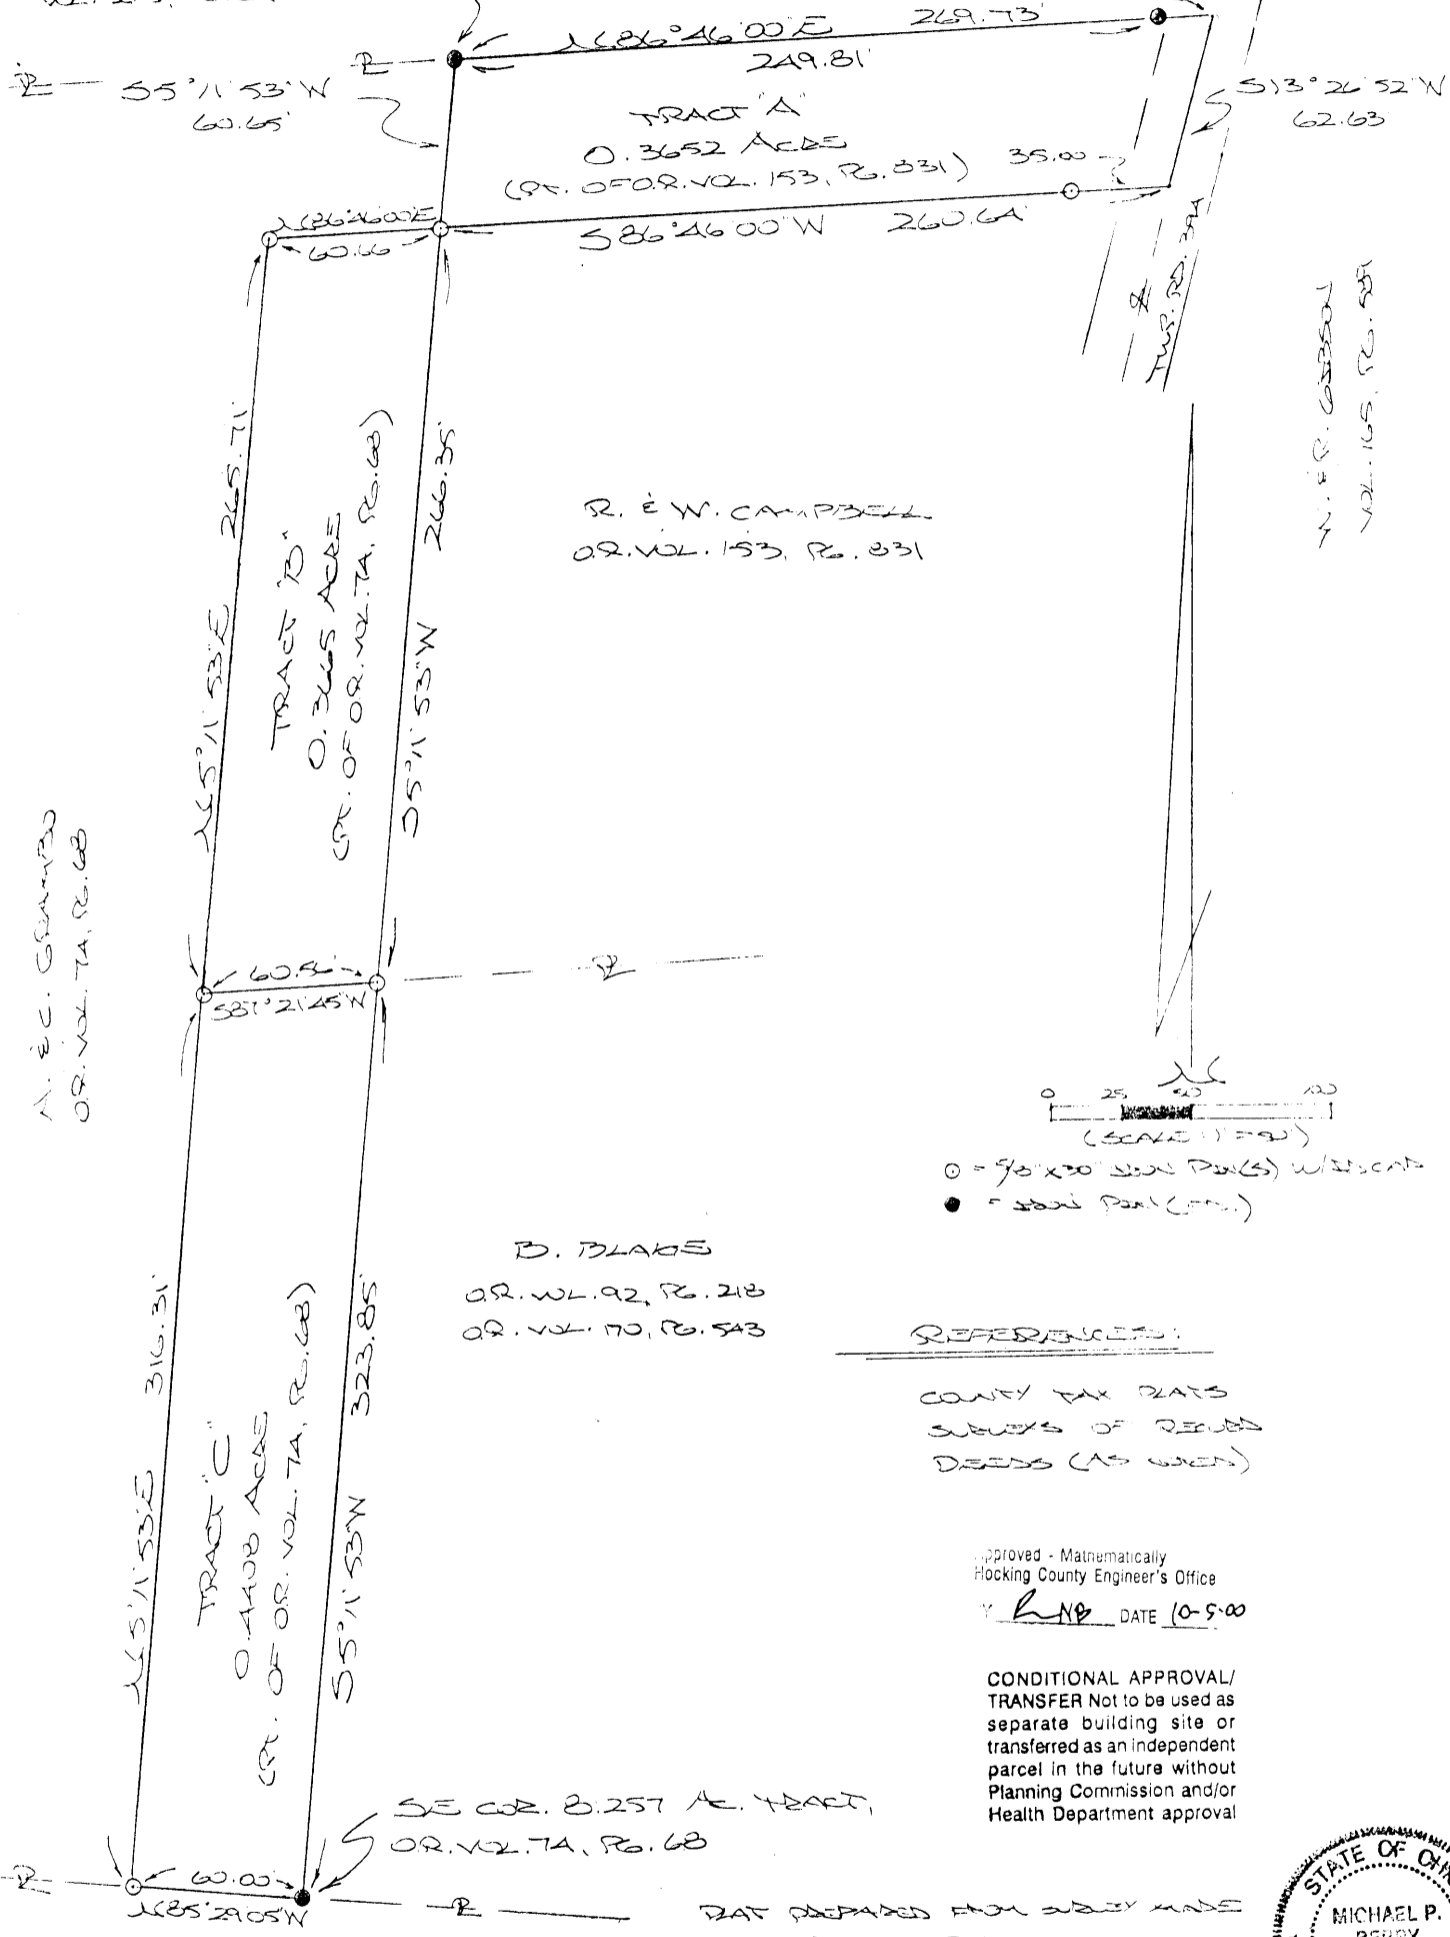 N86°46'00"E 269.73'
249.81'
S5°11'53"W
60.65'
S13°26'52"W
62.63'
TRACT "A"
0.3652 ACRE
(PT. OF O.R. VOL. 153, PG. 831)
35.00
N86°46'00"E
60.66
S86°46'00"W 260.64'
TWP. RD. 394
VOL. 165, PG.
N5°11'53"E 265.71'
TRACT "B"
0.3665 ACRE
(PT. OF O.R. VOL. 74, PG. 68)
S5°11'53"W 266.35'
R. & W. CAMPBELL
O.R. VOL. 153, PG. 831
A. & C.
O.R. VOL. 74, PG. 68
60.56'
S87°21'45"W
N
0 25 50 100
(SCALE 1"=50')
= 5/8"x30" IRON PIN(S) W/
= IRON PIN
B. BLAKE
O.R. VOL. 92, PG. 218
O.R. VOL. 170, PG. 543
N5°11'53"E 316.31'
TRACT "C"
0.4408 ACRE
(PT. OF O.R. VOL. 74, PG. 68)
S5°11'53"W 323.85'
REFERENCES:
COUNTY TAX PLATS
SURVEYS OF RECORD
DEEDS (AS NOTED)
Approved - Mathematically
Hocking County Engineer's Office
DATE 10-5-00
CONDITIONAL APPROVAL/
TRANSFER Not to be used as
separate building site or
transferred as an independent
parcel in the future without
Planning Commission and/or
Health Department approval
SE COR. 8.257 AC. TRACT,
O.R. VOL. 74, PG. 68
60.00'
N85°29'05"W
PLAT PREPARED FROM SURVEY MADE
STATE OF OHIO
MICHAEL P.
BERRY